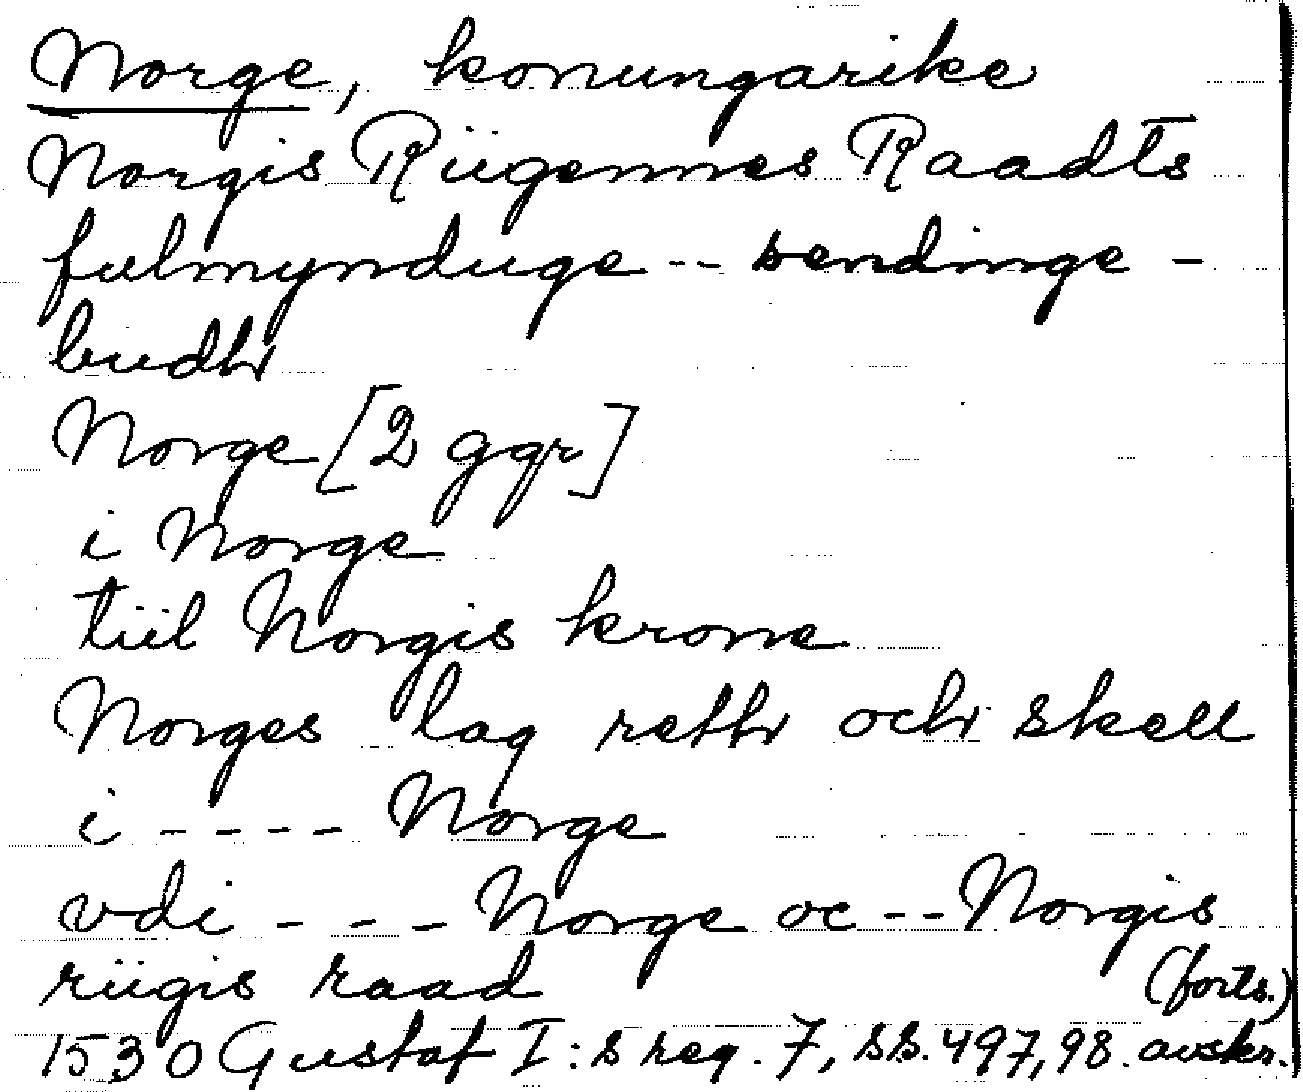 Norge, konungarike
Norgis Riigennes Raadts
fulmynduge -- sendinge -
budh
Norge [2 ggr]
i Norge
tiil Norgis krone
Norges lag reth och skell
i - - - - Norge
vdi - - - Norge oc -- Norgis
riigis raad (forts.)
1530 Gustaf I:s reg. 7, ss. 497, 98. avskr.